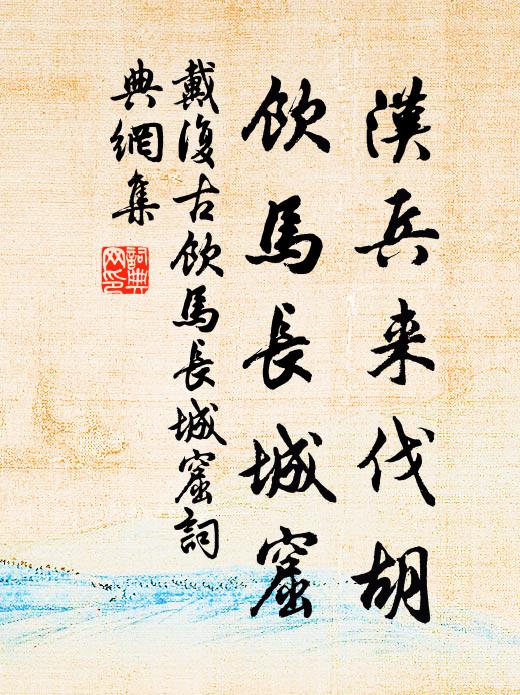 漢兵来伐胡
飲馬長城窟
戴復古飲馬長城窟詞
典網集
詞典
网印